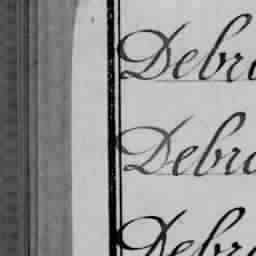 Debra
Debra
Debra